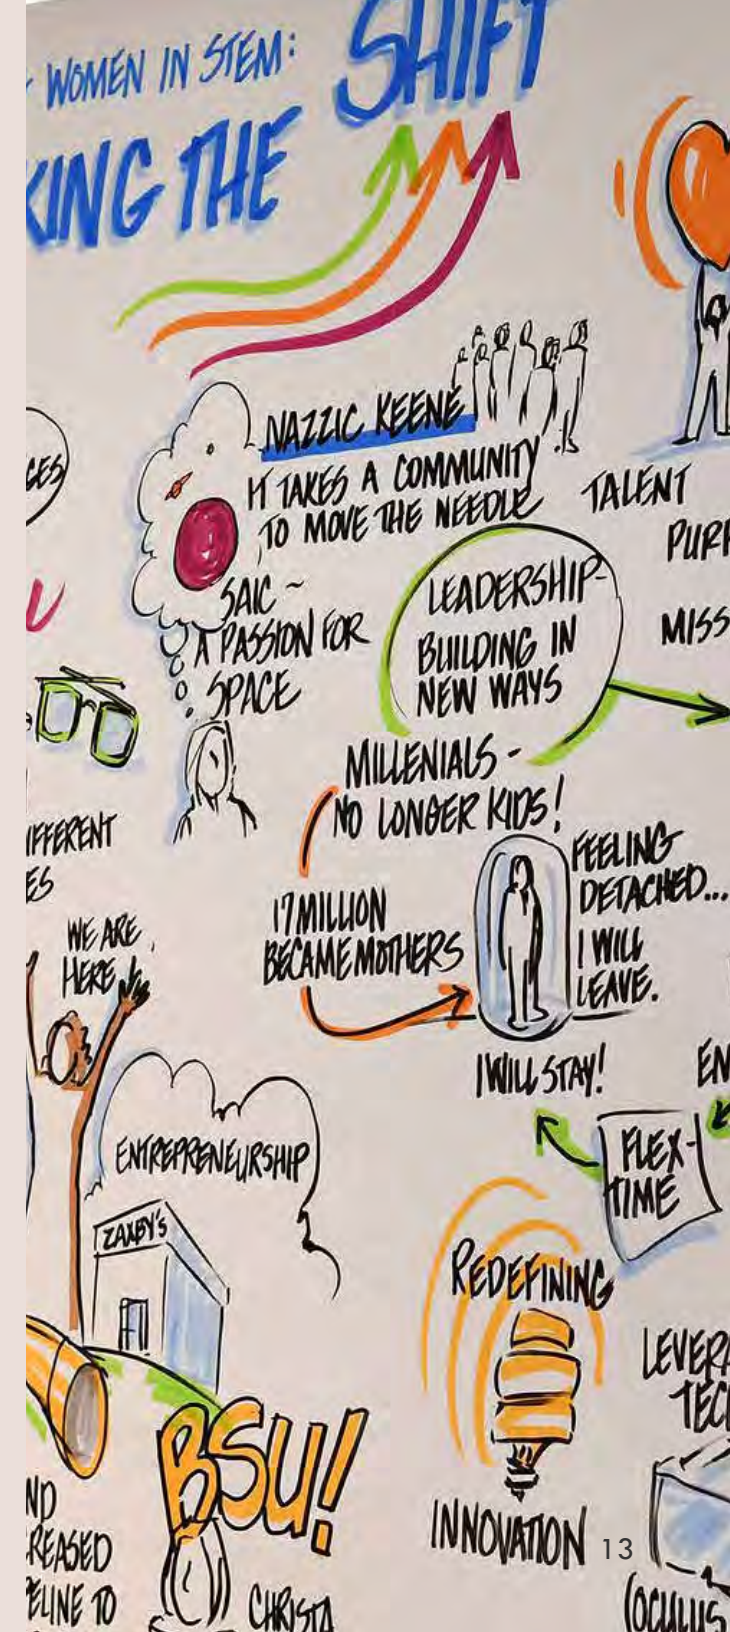 WOMEN IN STEM:
KING THE SHIFT
NAZZIC KEENE
IT TAKES A COMMUNITY
TO MOVE THE NEEDLE
SAIC ~
A PASSION FOR
SPACE
TALENT
PURP
MISS
LEADERSHIP-
BUILDING IN
NEW WAYS
MILLENIALS -
NO LONGER KIDS!
17 MILLION
BECAME MOTHERS
FEELING
DETACHED...
I WILL
LEAVE.
I WILL STAY!
EN
FLEX-
TIME
IFFERENT
ES
WE ARE
HERE
ENTREPRENEURSHIP
ZAXBY'S
BSU!
REDEFINING
INNOVATION
LEVERA
TEC
(OCULUS
ND
REASED
ELINE TO
CHRISTA
13